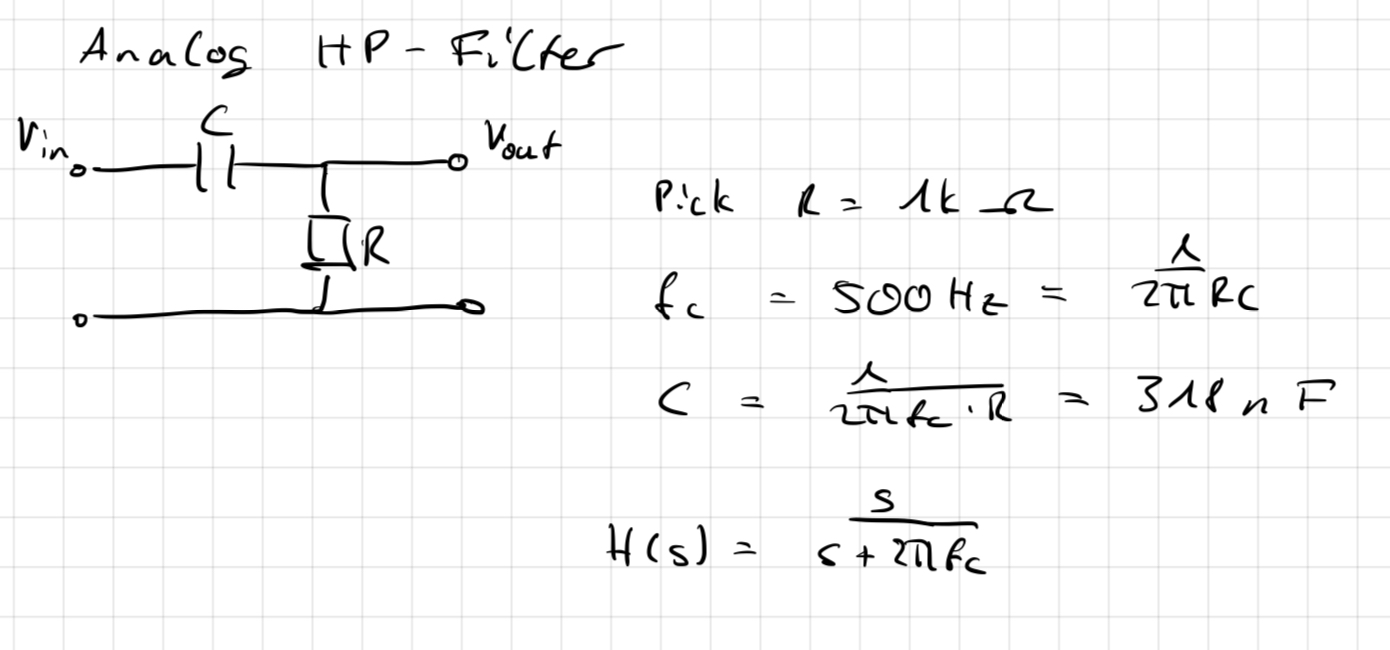 Analog HP-Filter
C
Vin
Vout
R
Pick R = 1k Ω
fc = 500 Hz = 1/2π RC
C = 1/2π fc · R = 318 n F
H(s) = s/s + 2π fc